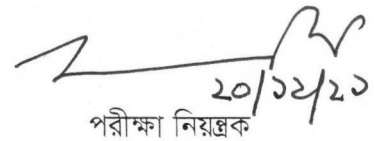 ২০/১২/২১
পরীক্ষা নিয়ন্ত্রক